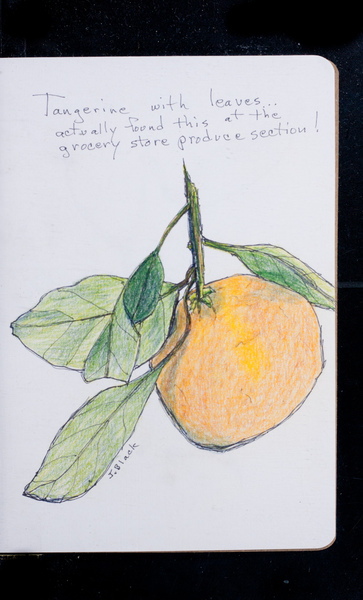 Tangerine with leaves...
actually found this at the
grocery store produce section!
J. Black